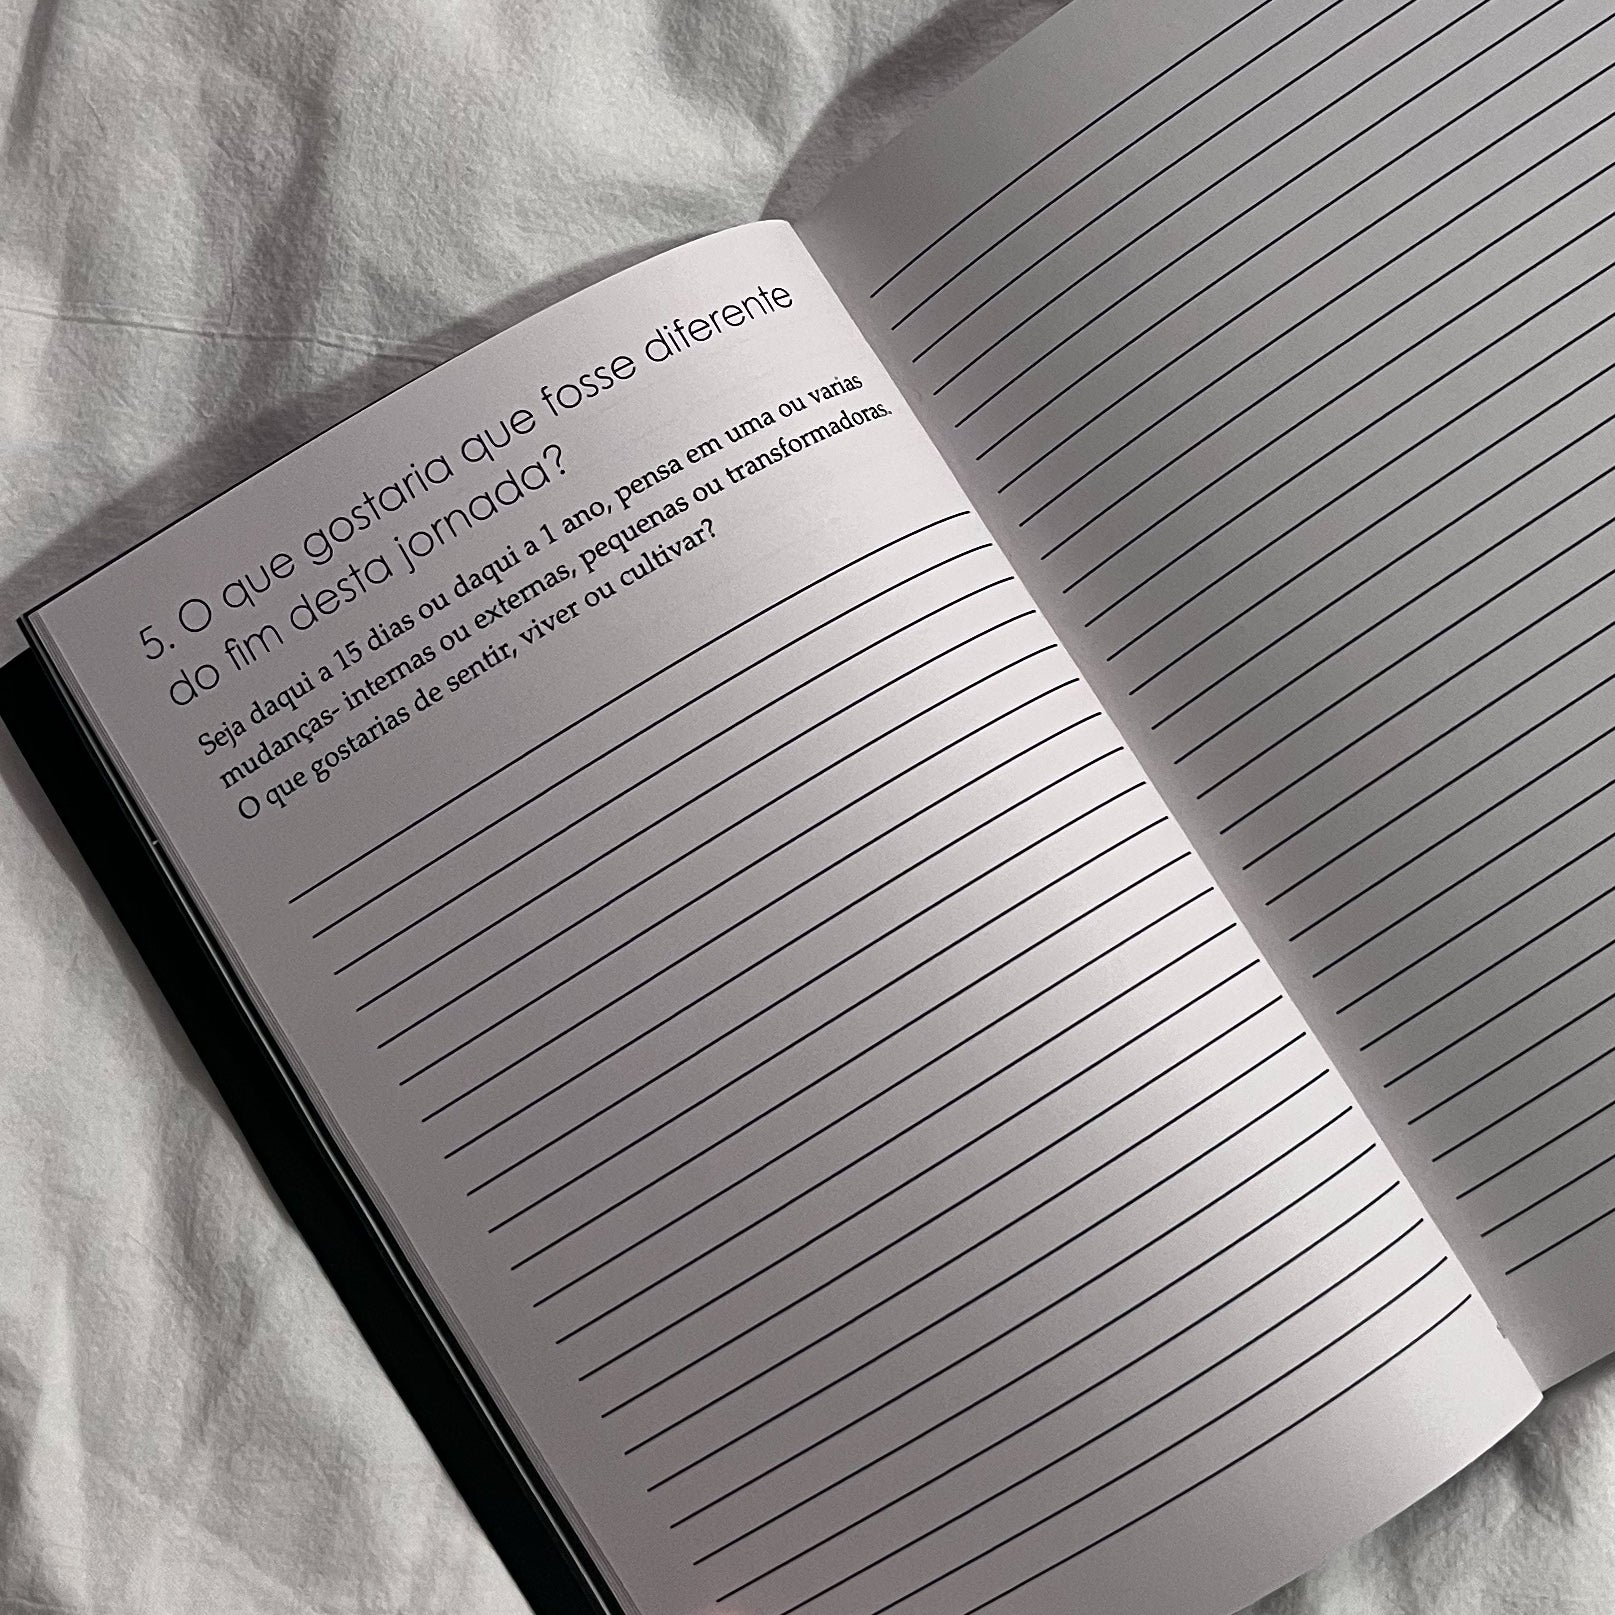 5. O que gostaria que fosse diferente
do fim desta jornada?
Seja daqui a 15 dias ou daqui a 1 ano, pensa em uma ou varias
mudanças- internas ou externas, pequenas ou transformadoras.
O que gostarias de sentir, viver ou cultivar?